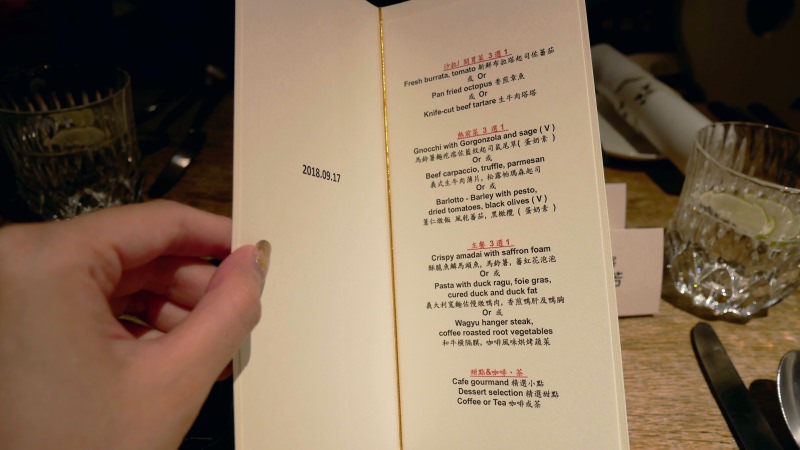 2018.09.17
沙拉/ 開胃菜 3 選 1
Fresh burrata, tomato 新鮮布拉塔起司佐蕃茄
或 Or
Pan fried octopus 香煎章魚
或 Or
Knife-cut beef tartare 生牛肉塔塔
熱前菜 3 選 1
Gnocchi with Gorgonzola and sage ( V )
馬鈴薯麵疙瘩佐藍紋起司鼠尾草( 蛋奶素 )
Or 或
Beef carpaccio, truffle, parmesan
義式生牛肉薄片, 松露帕瑪森起司
Or 或
Barlotto - Barley with pesto,
dried tomatoes, black olives ( V )
薏仁燉飯 風乾蕃茄, 黑橄欖 ( 蛋奶素 )
主餐 3 選 1
Crispy amadai with saffron foam
酥脆魚鱗馬頭魚, 馬鈴薯, 蕃紅花泡泡
Or 或
Pasta with duck ragu, foie gras,
cured duck and duck fat
義大利寬麵佐慢燉鴨肉, 香煎鴨肝及鴨胸
Or 或
Wagyu hanger steak,
coffee roasted root vegetables
和牛橫隔膜, 咖啡風味烘烤蔬菜
甜點&咖啡、茶
Cafe gourmand 精選小點
Dessert selection 精選甜點
Coffee or Tea 咖啡或茶
芳